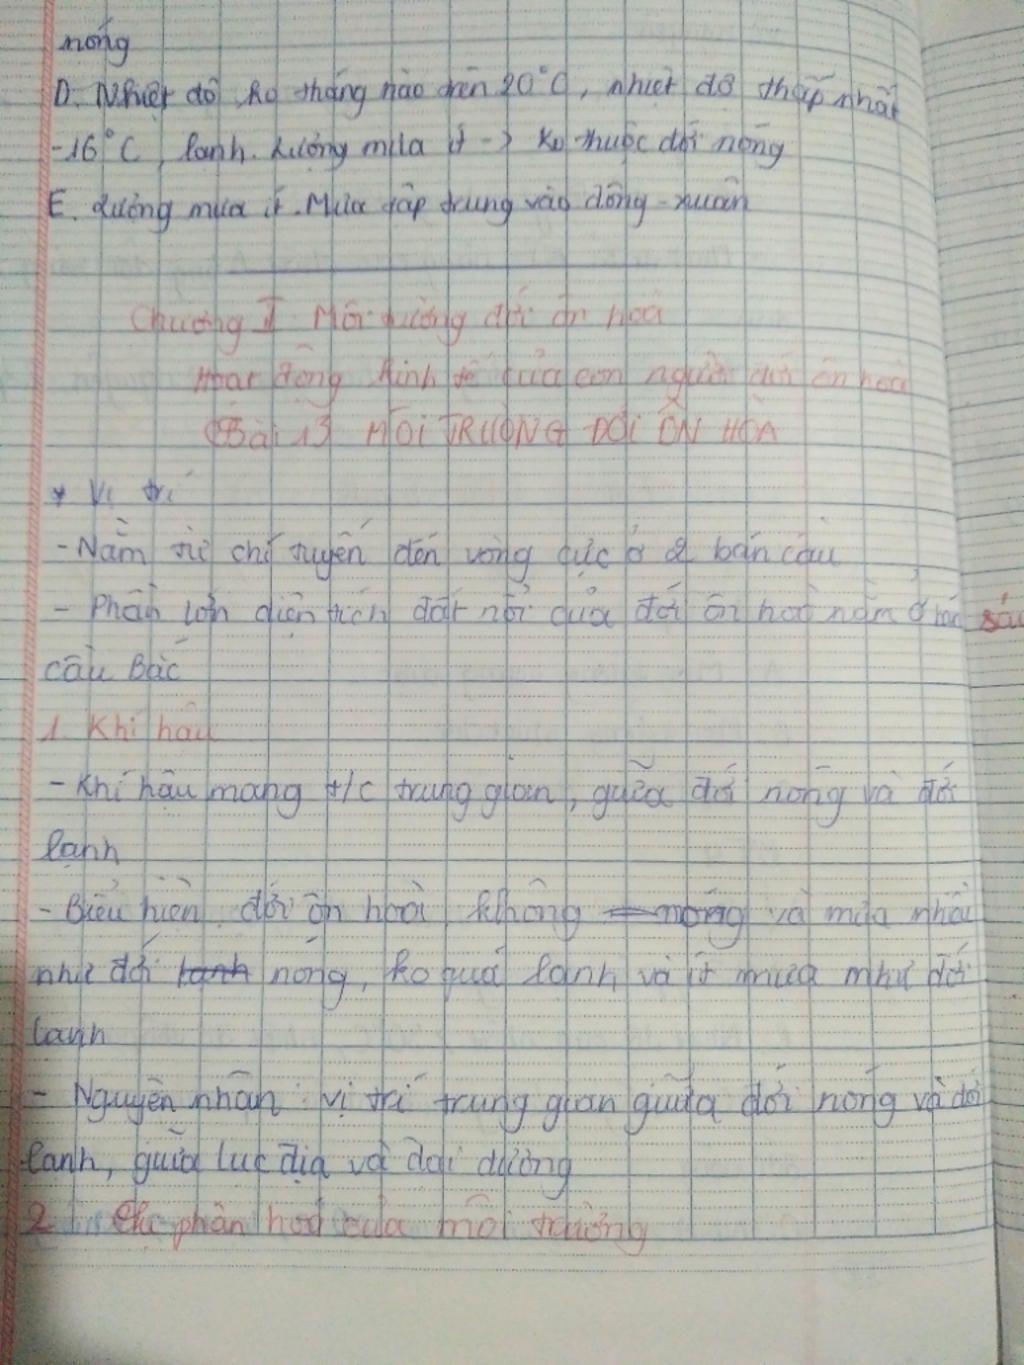 nóng
D. Nhiệt độ ko tháng nào trên 20°C, nhiệt độ thấp nhất
-16°C, lạnh. Lượng mưa ít -> ko thuộc đới nóng
E. Lượng mưa ít. Mưa tập trung vào đông - xuân
Chương II Môi trường đới ôn hoà
Hoạt động kinh tế của con người đới ôn hoà
Bài 13 MÔI TRƯỜNG ĐỚI ÔN HÒA
* Vị trí
- Nằm từ chí tuyến đến vòng cực ở 2 bán cầu
- Phần lớn diện tích đất nổi của đới ôn hoà nằm ở bán
cầu Bắc
1. Khí hậu
- Khí hậu mang t/c trung gian, giữa đới nóng và đới
lạnh
- Biểu hiện: đới ôn hoà không nóng và mưa nhiều
như đới lạnh nóng, ko quá lạnh và ít mưa như đới
lạnh
- Nguyên nhân: vị trí trung gian giữa đới nóng và đới
lạnh, giữa lục địa và đại dương
2. phân hoá của môi trường